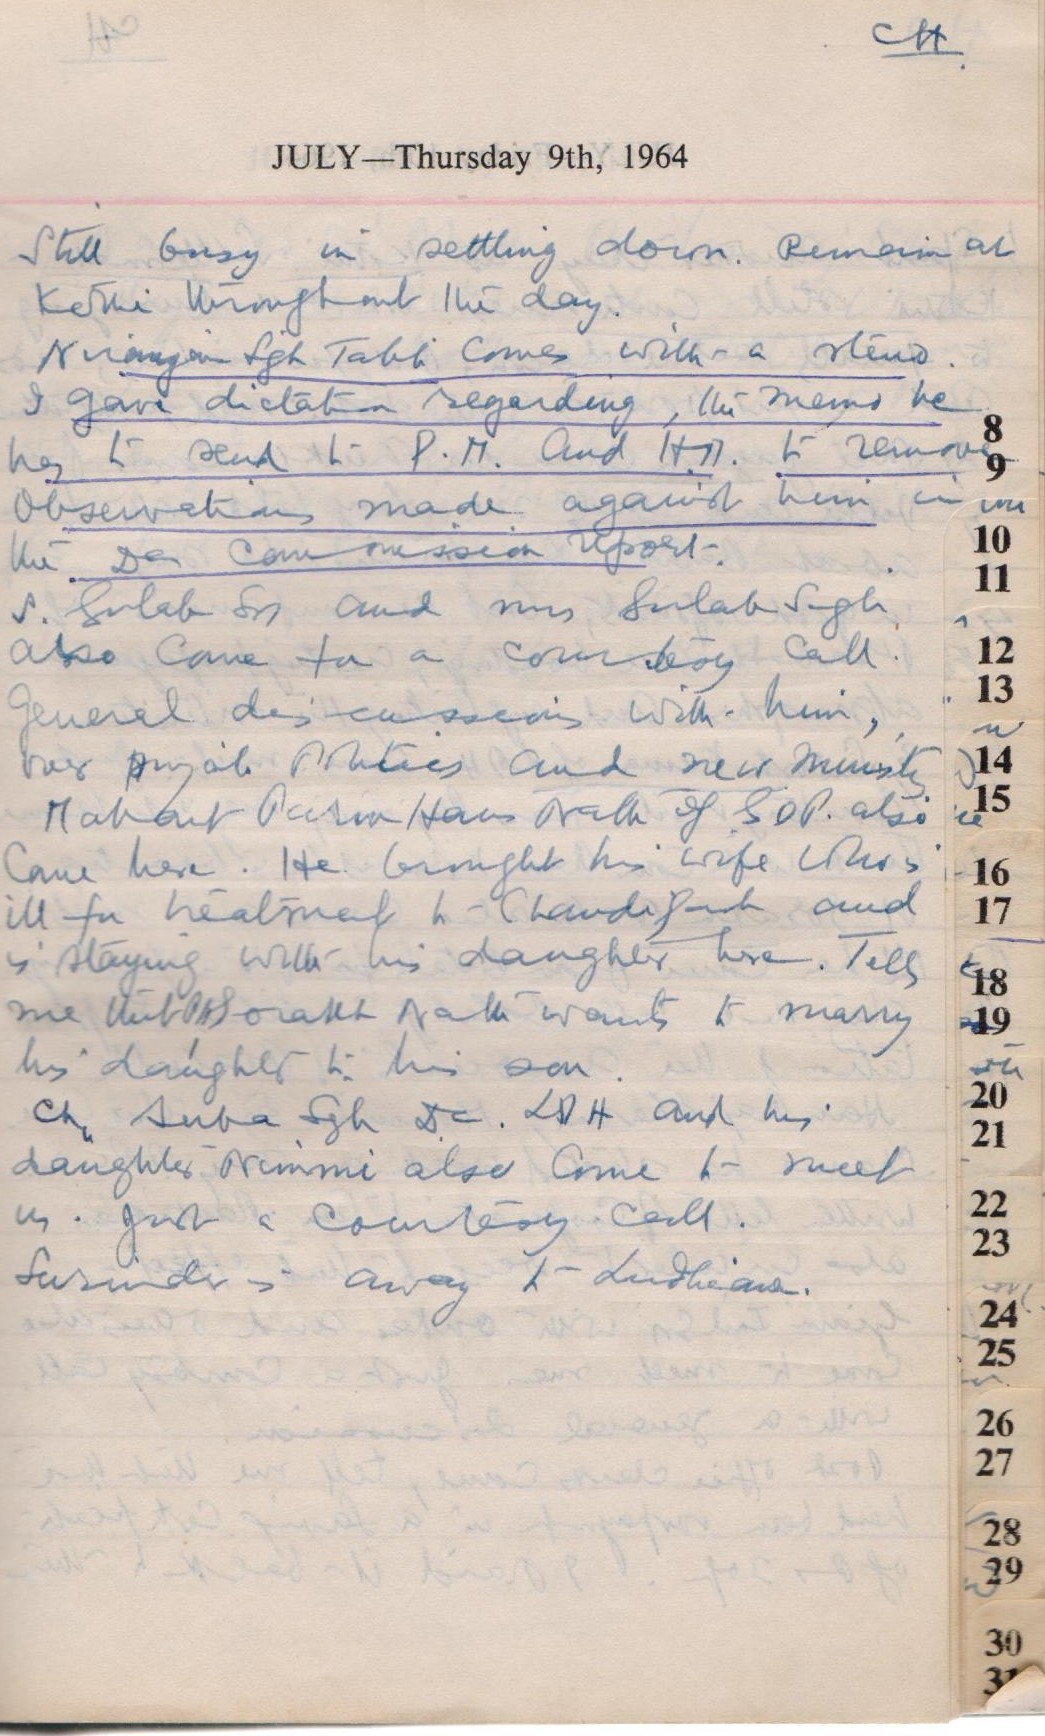 CH.
JULY—Thursday 9th, 1964
Still busy in settling down. Remain at
Kothi throughout the day.
Niranjan Sgh Talib Comes with a steno.
I gave dictation regarding, the memo he
has to send to P.M. and H.M. to remove
Observations made against him in
the Das Commission report.
S. Gulab Sgh and mrs Gulab Singh
also Come for a courtesy Call.
General discussions with him,
over Punjab Politics and new Ministry
Mahant Param Hans Nath of GDP. also
Came here. He brought his wife who is
ill for treatment to Chandigarh and
is staying with his daughter here. Tells
me that Gorakh Nath wants to marry
his daughter to his son.
Ch. Suba Sgh Dc. LDH and his
daughter Nimmi also Come to meet
us. Just a Courtesy Call.
Surinder is away to Ludhiana.
8
9
10
11
12
13
14
15
16
17
18
19
20
21
22
23
24
25
26
27
28
29
30
31